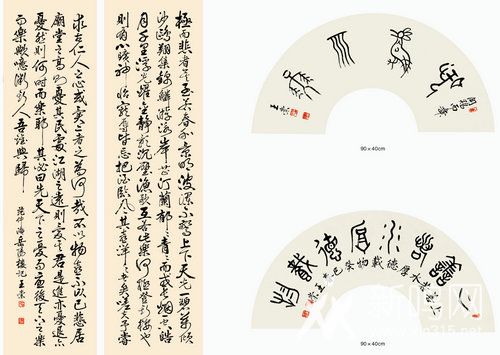 極而悲者矣至若春和景明波瀾不驚上下天光一碧萬頃
沙鷗翔集錦鱗游泳岸芷汀蘭郁郁青青而或長烟一空皓
月千里浮光耀金靜影沉璧漁歌互答此樂何極登斯樓也
則有心曠神怡寵辱皆忘把酒臨風其喜洋洋者矣嗟夫予嘗
求古仁人之心或異二者之為何哉不以物喜不以己悲居
廟堂之高則憂其民處江湖之遠則憂其君是進亦憂退亦
憂然則何時而樂耶其必曰先天下之憂而憂後天下之樂
而樂歟噫微斯人吾誰與歸
范仲淹岳陽樓記王崇
90×40cm
上善若水厚德載物
上善若水厚德載物癸巳
王崇
90×40cm
新鸣网